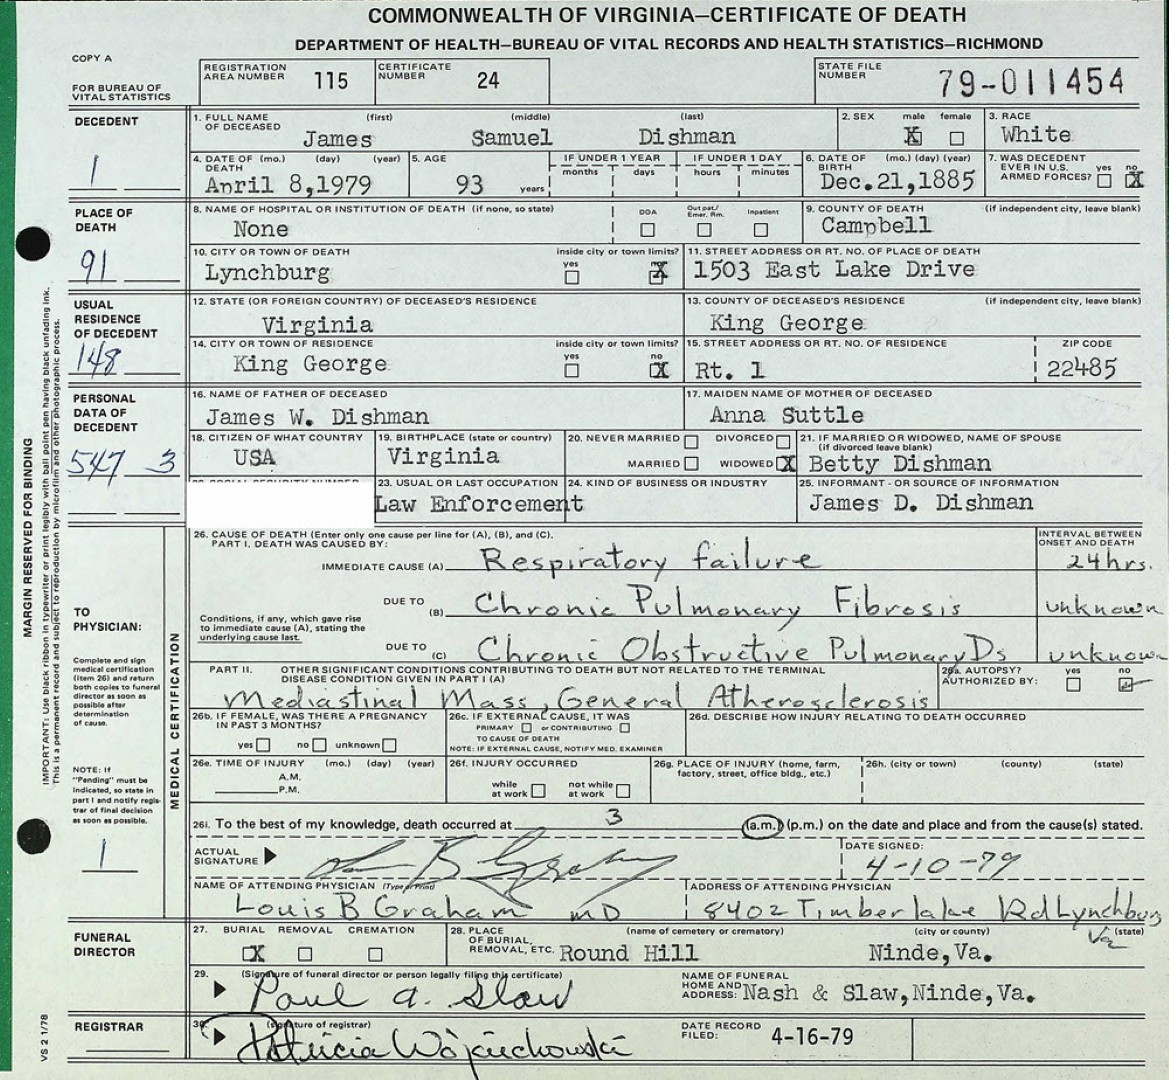 COMMONWEALTH OF VIRGINIA—CERTIFICATE OF DEATH
DEPARTMENT OF HEALTH—BUREAU OF VITAL RECORDS AND HEALTH STATISTICS—RICHMOND
COPY A
FOR BUREAU OF VITAL STATISTICS
REGISTRATION AREA NUMBER 115
CERTIFICATE NUMBER 24
STATE FILE NUMBER 79-011454
DECEDENT
1
1. FULL NAME OF DECEASED (first) (middle) (last)
James Samuel Dishman
2. SEX male female
X
3. RACE
White
4. DATE OF DEATH (mo.) (day) (year)
April 8,1979
5. AGE
93 years
IF UNDER 1 YEAR
months days
IF UNDER 1 DAY
hours minutes
6. DATE OF BIRTH (mo.) (day) (year)
Dec.21,1885
7. WAS DECEDENT EVER IN U.S. ARMED FORCES? yes no
X
PLACE OF DEATH
91
8. NAME OF HOSPITAL OR INSTITUTION OF DEATH (if none, so state)
None
DOA Out pat./ Emer. Rm. Inpatient
9. COUNTY OF DEATH (if independent city, leave blank)
Campbell
10. CITY OR TOWN OF DEATH inside city or town limits?
Lynchburg yes X
11. STREET ADDRESS OR RT. NO. OF PLACE OF DEATH
1503 East Lake Drive
USUAL RESIDENCE OF DECEDENT
148
12. STATE (OR FOREIGN COUNTRY) OF DECEASED'S RESIDENCE
Virginia
13. COUNTY OF DECEASED'S RESIDENCE (if independent city, leave blank)
King George
14. CITY OR TOWN OF RESIDENCE inside city or town limits?
King George yes no X
15. STREET ADDRESS OR RT. NO. OF RESIDENCE ZIP CODE
Rt. 1 22485
PERSONAL DATA OF DECEDENT
547 3
16. NAME OF FATHER OF DECEASED
James W. Dishman
17. MAIDEN NAME OF MOTHER OF DECEASED
Anna Suttle
18. CITIZEN OF WHAT COUNTRY
USA
19. BIRTHPLACE (state or country)
Virginia
20. NEVER MARRIED DIVORCED
MARRIED WIDOWED X
21. IF MARRIED OR WIDOWED, NAME OF SPOUSE
(if divorced leave blank)
Betty Dishman
23. USUAL OR LAST OCCUPATION
Law Enforcement
24. KIND OF BUSINESS OR INDUSTRY
25. INFORMANT - OR SOURCE OF INFORMATION
James D. Dishman
MARGIN RESERVED FOR BINDING
IMPORTANT: Use black ribbon in typewriter or print legibly with ball point pen having black unfading ink.
This is a permanent record and subject to reproduction by microfilm and other photographic process.
TO PHYSICIAN:
Complete and sign medical certification (item 26) and return both copies to funeral director as soon as possible after determination of cause.
NOTE: If "Pending" must be indicated, so state in part I and notify registrar of final decision as soon as possible.
1
MEDICAL CERTIFICATION
26. CAUSE OF DEATH (Enter only one cause per line for (A), (B), and (C).
PART I. DEATH WAS CAUSED BY:
INTERVAL BETWEEN ONSET AND DEATH
IMMEDIATE CAUSE (A) Respiratory failure 24hrs.
DUE TO (B) Chronic Pulmonary Fibrosis unknown
Conditions, if any, which gave rise to immediate cause (A), stating the underlying cause last.
DUE TO (C) Chronic Obstructive Pulmonary Ds unknown
PART II. OTHER SIGNIFICANT CONDITIONS CONTRIBUTING TO DEATH BUT NOT RELATED TO THE TERMINAL DISEASE CONDITION GIVEN IN PART I (A)
Mediastinal Mass, General Atherosclerosis
26a. AUTOPSY? AUTHORIZED BY: yes no
26b. IF FEMALE, WAS THERE A PREGNANCY IN PAST 3 MONTHS?
yes no unknown
26c. IF EXTERNAL CAUSE, IT WAS
PRIMARY or CONTRIBUTING
TO CAUSE OF DEATH
NOTE: IF EXTERNAL CAUSE, NOTIFY MED. EXAMINER
26d. DESCRIBE HOW INJURY RELATING TO DEATH OCCURRED
26e. TIME OF INJURY (mo.) (day) (year)
A.M.
P.M.
26f. INJURY OCCURRED
while at work not while at work
26g. PLACE OF INJURY (home, farm, factory, street, office bldg., etc.)
26h. (city or town) (county) (state)
26i. To the best of my knowledge, death occurred at 3 (a.m.) (p.m.) on the date and place and from the cause(s) stated.
ACTUAL SIGNATURE
DATE SIGNED:
4-10-79
NAME OF ATTENDING PHYSICIAN (Type or Print)
Louis B Graham MD
ADDRESS OF ATTENDING PHYSICIAN
8402 Timberlake Rd Lynchburg
Va
FUNERAL DIRECTOR
27. BURIAL REMOVAL CREMATION
X
28. PLACE OF BURIAL, REMOVAL, ETC. (name of cemetery or crematory) (city or county) (state)
Round Hill Ninde,Va.
29. (Signature of funeral director or person legally filing this certificate)
Paul A. Slaw
NAME OF FUNERAL HOME AND ADDRESS: Nash & Slaw,Ninde,Va.
REGISTRAR
30. (signature of registrar)
Patricia Wojciechowski
DATE RECORD FILED: 4-16-79
VS 2 1/78